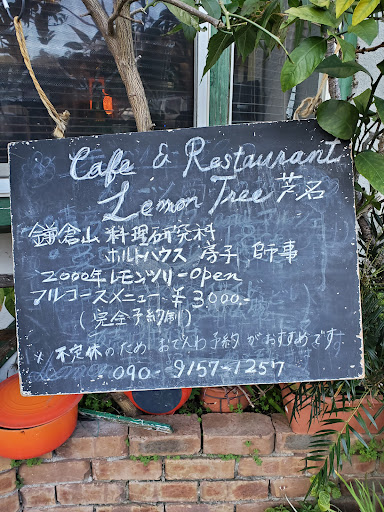 Cafe & Restaurant
Lemon Tree 芦名
鎌倉山 料理研究科
ホルトハウス 房子 師事
2000年 レモンツリーopen
フルコースメニュー ¥3,000-
(完全予約制)
* 不定休のため おでんわ予約 がおすすめです
090-9157-1257